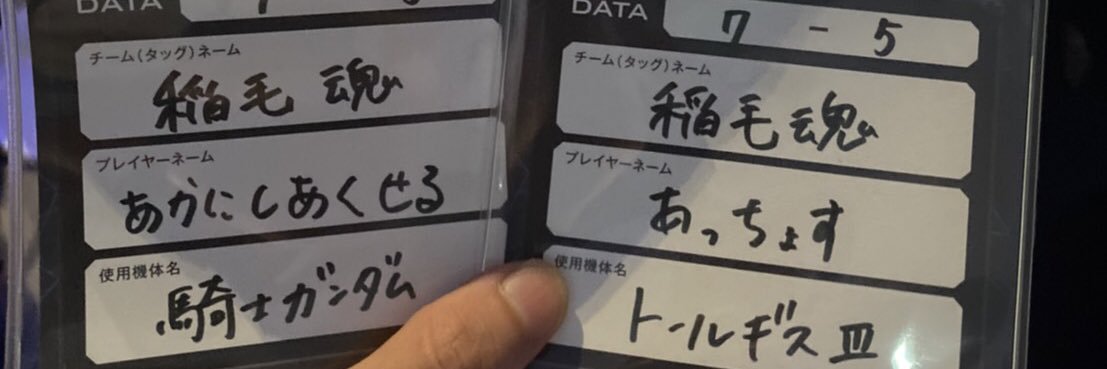 DATA
チーム(タッグ)ネーム
稲毛 魂
プレイヤーネーム
あかにしあくせる
使用機体名
騎士ガンダム
DATA
7 - 5
チーム(タッグ)ネーム
稲毛 魂
プレイヤーネーム
あっちょす
使用機体名
トールギス Ⅲ